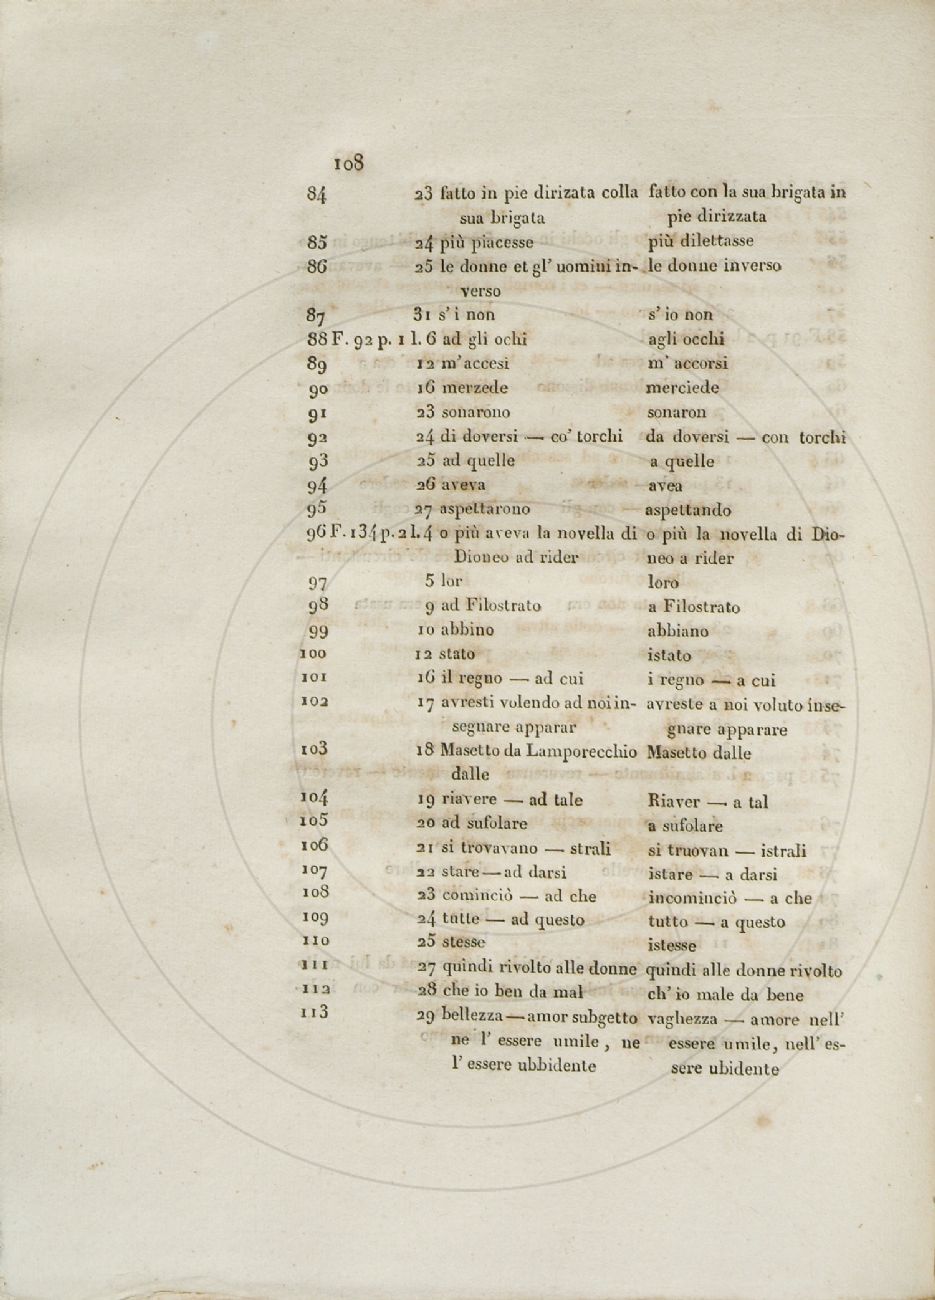 108
84 23 fatto in pie dirizata colla fatto con la sua brigata in
sua brigata pie dirizzata
85 24 più piacesse più dilettasse
86 25 le donne et gl' uomini in- le donne inverso
verso
87 31 s' i non s' io non
88 F. 92 p. 1 l. 6 ad gli ochi agli occhi
89 12 m' accesi m' accorsi
90 16 merzede merciede
91 23 sonarono sonaron
92 24 di doversi — co' torchi da doversi — con torchi
93 25 ad quelle a quelle
94 26 aveva avea
95 27 aspettarono aspettando
96 F. 134 p. 2 l. 4 o più aveva la novella di o più la novella di Dio-
Dioneo ad rider neo a rider
97 5 lor loro
98 9 ad Filostrato a Filostrato
99 10 abbino abbiano
100 12 stato istato
101 16 il regno — ad cui i regno — a cui
102 17 avresti volendo ad noi in- avreste a noi voluto inse-
segnare apparar gnare apparare
103 18 Masetto da Lamporecchio Masetto dalle
dalle
104 19 riavere — ad tale Riaver — a tal
105 20 ad sufolare a sufolare
106 21 si trovavano — strali si truovan — istrali
107 22 stare — ad darsi istare — a darsi
108 23 cominciò — ad che incominciò — a che
109 24 tutte — ad questo tutto — a questo
110 25 stesse istesse
111 27 quindi rivolto alle donne quindi alle donne rivolto
112 28 che io ben da mal ch' io male da bene
113 29 bellezza — amor subgetto vaghezza — amore nell'
ne l' essere umile , ne essere umile, nell' es-
l' essere ubbidente sere ubidente